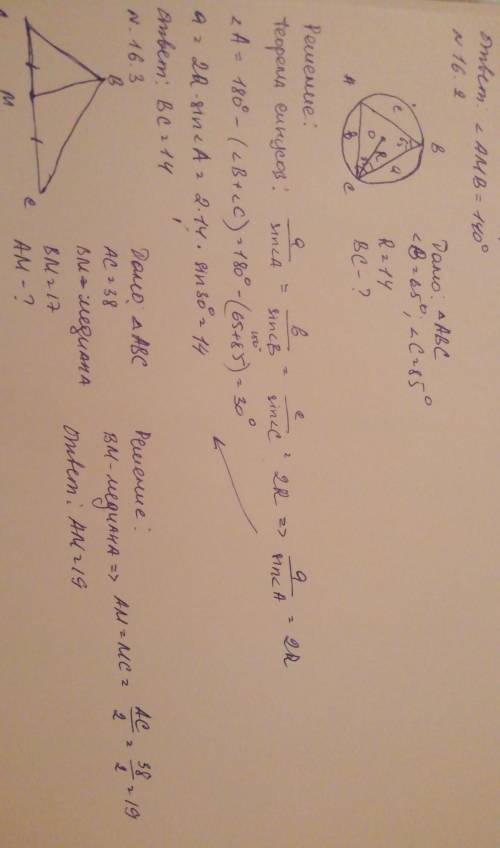 Ответ: ∠AMB = 140°
N 16.2
A
B
C
c
O
R
a
в
Дано: △ABC
∠B=65°, ∠C=85°
R=14
BC - ?
Решение:
теорема синусов: a/sin∠A = в/sin∠B = c/sin∠C = 2R => a/sin∠A = 2R
∠A = 180° - (∠B+∠C) = 180° - (65+85) = 30°
150°
a = 2R · sin∠A = 2·14 · sin30° = 14
Ответ: BC = 14
N. 16.3
B
M
C
Дано: △ABC
AC=38
BM=медиана
BM=17
AM - ?
Решение:
BM-медиана => AM=MC= AC/2 = 38/2 = 19
Ответ: AM=19